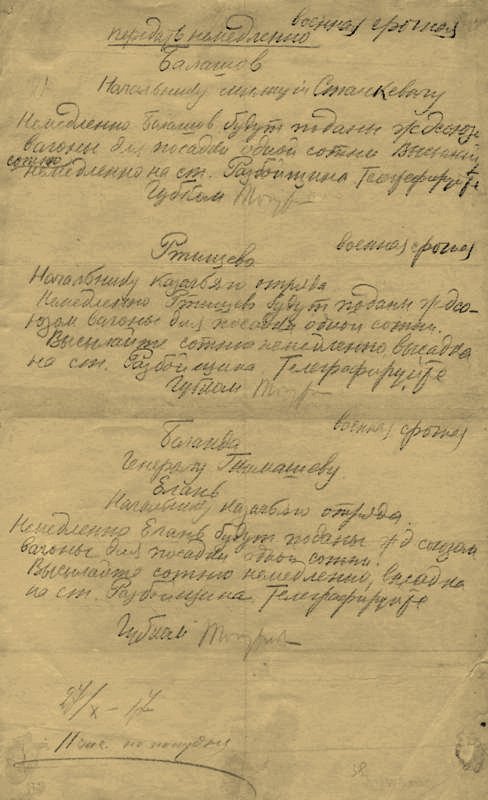 военная срочная
передать немедленно
Балашов
Начальнику милиции Сталкевичу
Немедленно Балашов будут поданы ж д союзо
вагоны для посадки одной сотни Высылайте
сотню
немедленно на ст. Разбойщина Телеграфируйте
Губком
военная срочная
Ртищево
Начальнику казачьяго отряда
Немедленно Ртищево будут поданы ж дсо-
юзом вагоны для посадки одной сотни.
Высылайте сотню немедленно, высадка
на ст. Разбойщина Телеграфируйте
Губком
военная срочная
Баланда
Генералу Тимашеву
Елань
Начальнику казачьяго отряда.
Немедленно Елань будут поданы ж д союзом
вагоны для посадки одной сотни.
Высылайте сотню немедленно, высадка
на ст. Разбойщина Телеграфируйте
Губком
27/X - 17
11 час. по полудни
58